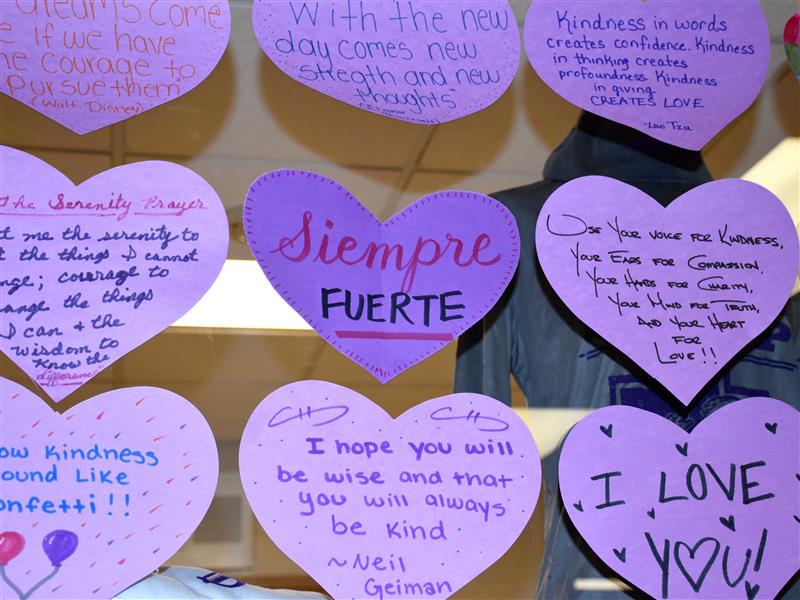 dreams come
if we have
courage to
pursue them"
(Walt Disney)
"With the new
day comes new
streath and new
thoughts"
Kindness in words
creates confidence. Kindness
in thinking creates
profoundness. Kindness
in giving
CREATES LOVE
-Lao Tzu
The Serenity Prayer
me the serenity to
the things I cannot
courage to
the things
I can & the
wisdom to
Know the
difference
Siempre
FUERTE
Use Your voice for Kindness,
Your Ears for Compassion,
Your Hands for Charity,
Your Mind for Truth,
And Your Heart
for
Love!!
Kindness
Like
I hope you will
be wise and that
you will always
be kind
~Neil
Geiman
I LOVE
YOU!